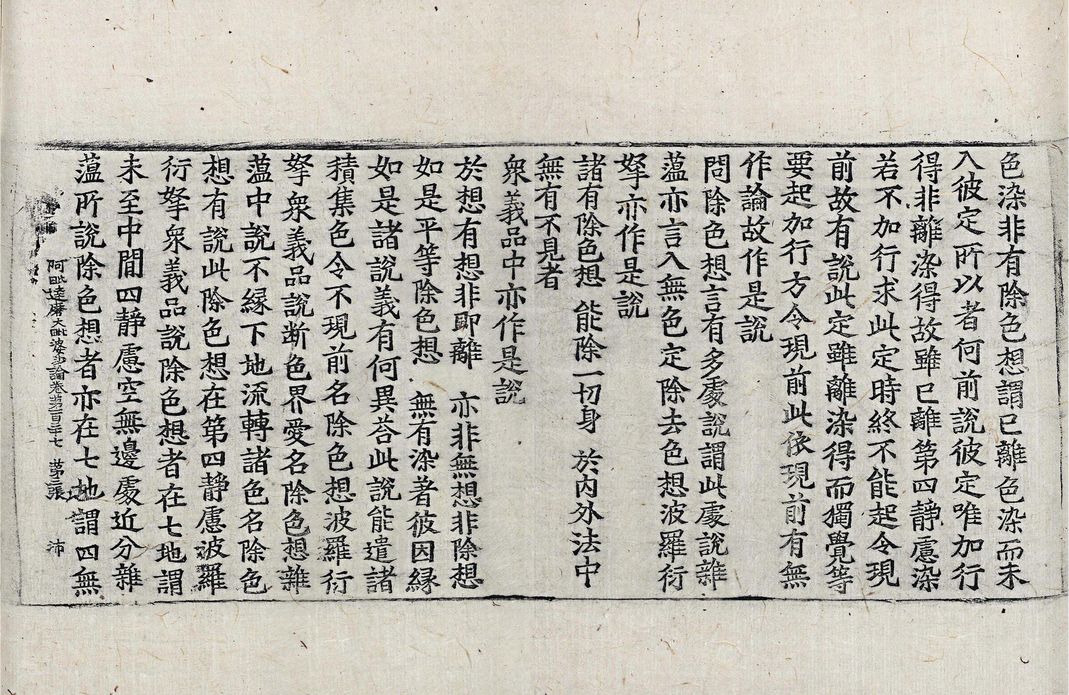 色染非有除色想謂已離色染而未
入彼定所以者何前說彼定唯加行
得非離染得故雖已離第四靜慮染
若不加行求此定時終不能起令現
前故有說此定雖離染得而獨覺等
要起加行方令現前此依現前有無
作論故作是說
問除色想言有多處說謂此處說雜
薀亦言入無色定除去色想波羅衍
拏亦作是說
諸有除色想 能除一切身 於內外法中
無有不見者
衆義品中亦作是說
於想有想非即離 亦非無想非除想
如是平等除色想 無有染著彼因緣
如是諸說義有何異荅此說能遣諸
積集色令不現前名除色想波羅衍
拏衆義品說断色界愛名除色想雜
薀中說不緣下地流轉諸色名除色
想有說此除色想在第四靜慮波羅
衍拏衆義品說除色想者在七地謂
未至中間四靜慮空無邊處近分雜
阿毗達磨大毗婆沙論卷第一百三十七 第三張 沛
薀所說除色想者亦在七地謂四無